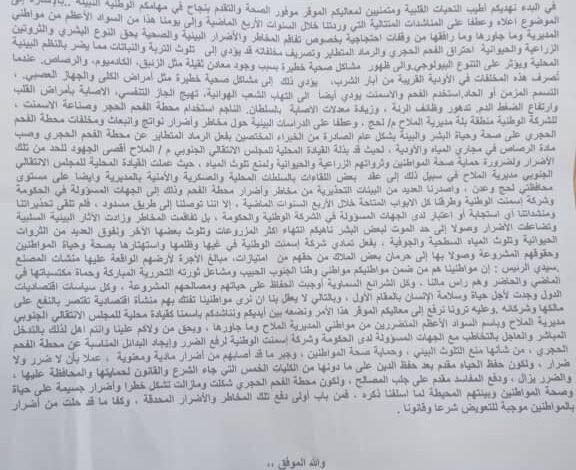 في البدء نهديكم أطيب التحيات القلبية ومتمنيين لمعاليكم الموقر موفور الصحة والتقدم بنجاح في مهامكم الوطنية النبيلة
الموضوع اعلاه وعطفا على المناشدات المتتالية التي وردتنا خلال السنوات الأربع الماضية وإلى يومنا هذا من السواد الأعظم من مواطني
المديرية وما جاورها وما رافقها من وقفات احتجاجية بخصوص تفاقم المخاطر والأضرار البيئية والصحية بحق النوع البشري والثروتين
الزراعية والحيوانية احتراق الفحم الحجري والرماد المتطاير وتصريف مخلفاته قد يؤدي إلى تلوث التربة والنباتات مما يضر بالنظم البيئية
المحلية ويؤثر على التنوع البيولوجي والى ظهور مشاكل صحية خطيرة بسبب وجود معادن ثقيلة مثل الزئبق، الكادميوم، والرصاص. عندما
تصرف هذه المخلفات في الأودية القريبة من آبار الشرب، يؤدي ذلك إلى مشاكل صحية خطيرة مثل أمراض الكلى والجهاز العصبي،
التسمم المزمن أو الحاد. استخدم الفحم والاسمنت يودي أيضا إلى التهاب الشعب الهوائية، تهيج الجاز التنفسي، الاصابة بأمراض القلب
وارتفاع الضغط الدم. تدهور وظائف الرئة، وزيادة معدلات الاصابة بالسلطان. الناجم استخدام محطة الفحم الحجر وصناعة الاسمنت،
للشركة الوطنية منطقة بلة مديرية الملاح م/ لحج، وعطف على الدراسات البيئية حول مخاطر وأضرار نواتج وانبعاث ومخلفات محطة الفحم
الحجري على صحة وحياة البشر والبيئة بشكل عام الصادرة من الخبراء المختصين بفعل الرماد المتطاير عن محطة الفحم الحجري وصب
مادة الرصاص في مجاري المياه والأودية، لحيث قد بذلة القيادة المحلية للمجلس الانتقالي الجنوبي م / الملاح أقصى الجهود للحد من تلك
الأضرار ولضرورة حماية صحة المواطنين وثرواتهم الزراعية والحيوانية ولمنع تلوث المياه، حيث عملت القيادة المحلية للمجلس الانتقالي
الجنوبي مديرية الملاح في سبيل ذلك إلى عقد بعض اللقاءات بالسلطات المحلية والعسكرية والأمنية بالمديرية وايضا على مستوى
محافظتي لحج وعدن، واصدرنا العديد من البينات التحذيرية من مخاطر وأضرار محطة الفحم وذلك إلى الجهات المسؤولة في الحكومة
وشركة إسمنت الوطنية وطرقنا كل الابواب المتاحة خلال الأربع السنوات الماضية، إلا اننا توصلنا إلى طريق مسدود، فلم تلقى تحذيراتنا
ومنشداتنا أي استجابة أو اعتبار لدى الجهات المسؤولة في الشركة الوطنية والحكومة، بل تفاقمت المخاطر وزادت الأثار البيئية السلبية
وتضاعفت الأضرار وصولا إلى حد الموت لبعض البشر ناهيكم انتهاء اكثر المزروعات وتلوث بعضها الأخر ونفوق العديد من الثروات
الحيوانية وتلوث المياه السطحية والجوفية، بفعل تمادي شركة إسمنت الوطنية في غيها وظلمها واستهتارها بصحة وحياة المواطنين
وحقوقهم المشروعة وصولا بها إلى حرمان بعض الملاك من حقهم من امتيازات، مبالغ الأجرة لأرضهم الواقعة عليها منشات المصنع
.سيدي الرئيس : إن مواطنينا هم من ضمن مواطنيكم مواطني وطنا الجنوب الحبيب ومشاعل ثورته التحررية المباركة وحماة مكتسباتها في
الماضي والحاضر وهم راس مالنا، وكل الشرائع السماوية أوجبت الحفاظ على حياتهم ومصالحهم المشروعة، وكل سياسات اقتصاديات
الدول وجدت لأجل حياة وسلامة الإنسان بالمقام الأول، وبالتالي لا يعقل بنا ان نرى مواطنينا تفتك بهم منشأة اقتصادية تقتصر بالنفع على
مالكها وشركائه. وعليه تروننا نرفع إلى معاليكم الموقر هذا الامر ونضعه بين أيديكم ونناشدكم باسمنا كقيادة محلية للمجلس الانتقالي الجنوبي
مديرية الملاح وباسم السواد الأعظم المتضررين من مواطني المديرية الملاح وما جاورها، وبحق من ولاكم علينا وانتم اهل لذلك بالتدخل
المباشر والعاجل بالتخاطب مع الجهات المسؤولة لدى الحكومة وشركة إسمنت الوطنية لرفع الضرر وإيجاد البدائل المناسبة عن محطة الفحم
الحجري، من شأنها منع التلوث البيئي، وحماية صحة المواطنين، وجبر ما قد أصابهم من أضرار مادية ومعنوية، عملا بأن لا ضرر ولا
ضرار، ولكون حفظ الحياه مقدم بعد حفظ الدين على ما دونها من الكليات الخمس التي جاء الشرع والقانون لحمايتها والمحافظة عليها،
والضرر يزال، ودفع المفاسد مقدم على جلب المصالح، ولكون محطة الفحم الحجري شكلت ومازالت تشكل خطرا وأضرار جسيمة على حياة
وصحة المواطنين وبيئتهم المحيطة لما اسلفنا ذكره، فمن باب أولى دفع تلك المخاطر والأضرار المحدقة، وكفا ما قد حلت من أضرار
بالمواطنين موجبة للتعويض شرعا وقانونا .
والله الموفق ،،